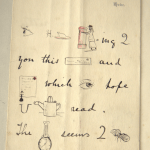 ing 2
you this and
which hope
read.
The seems 2